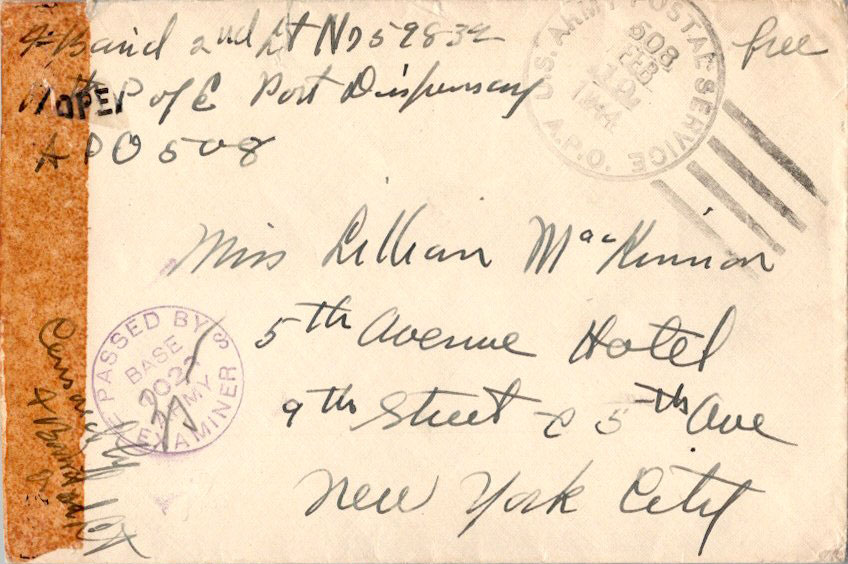 Baird 2nd Lt N759832
11th P of E Port Dispensary
APO 508
free
OPE
U.S. ARMY POSTAL SERVICE
508
FEB
10
1944
A.P.O.
Miss Lillian MacKinnon
5th Avenue Hotel
9th Street & 5th Ave
New York City
PASSED BY
BASE
ARMY
EXAMINER
Censored by